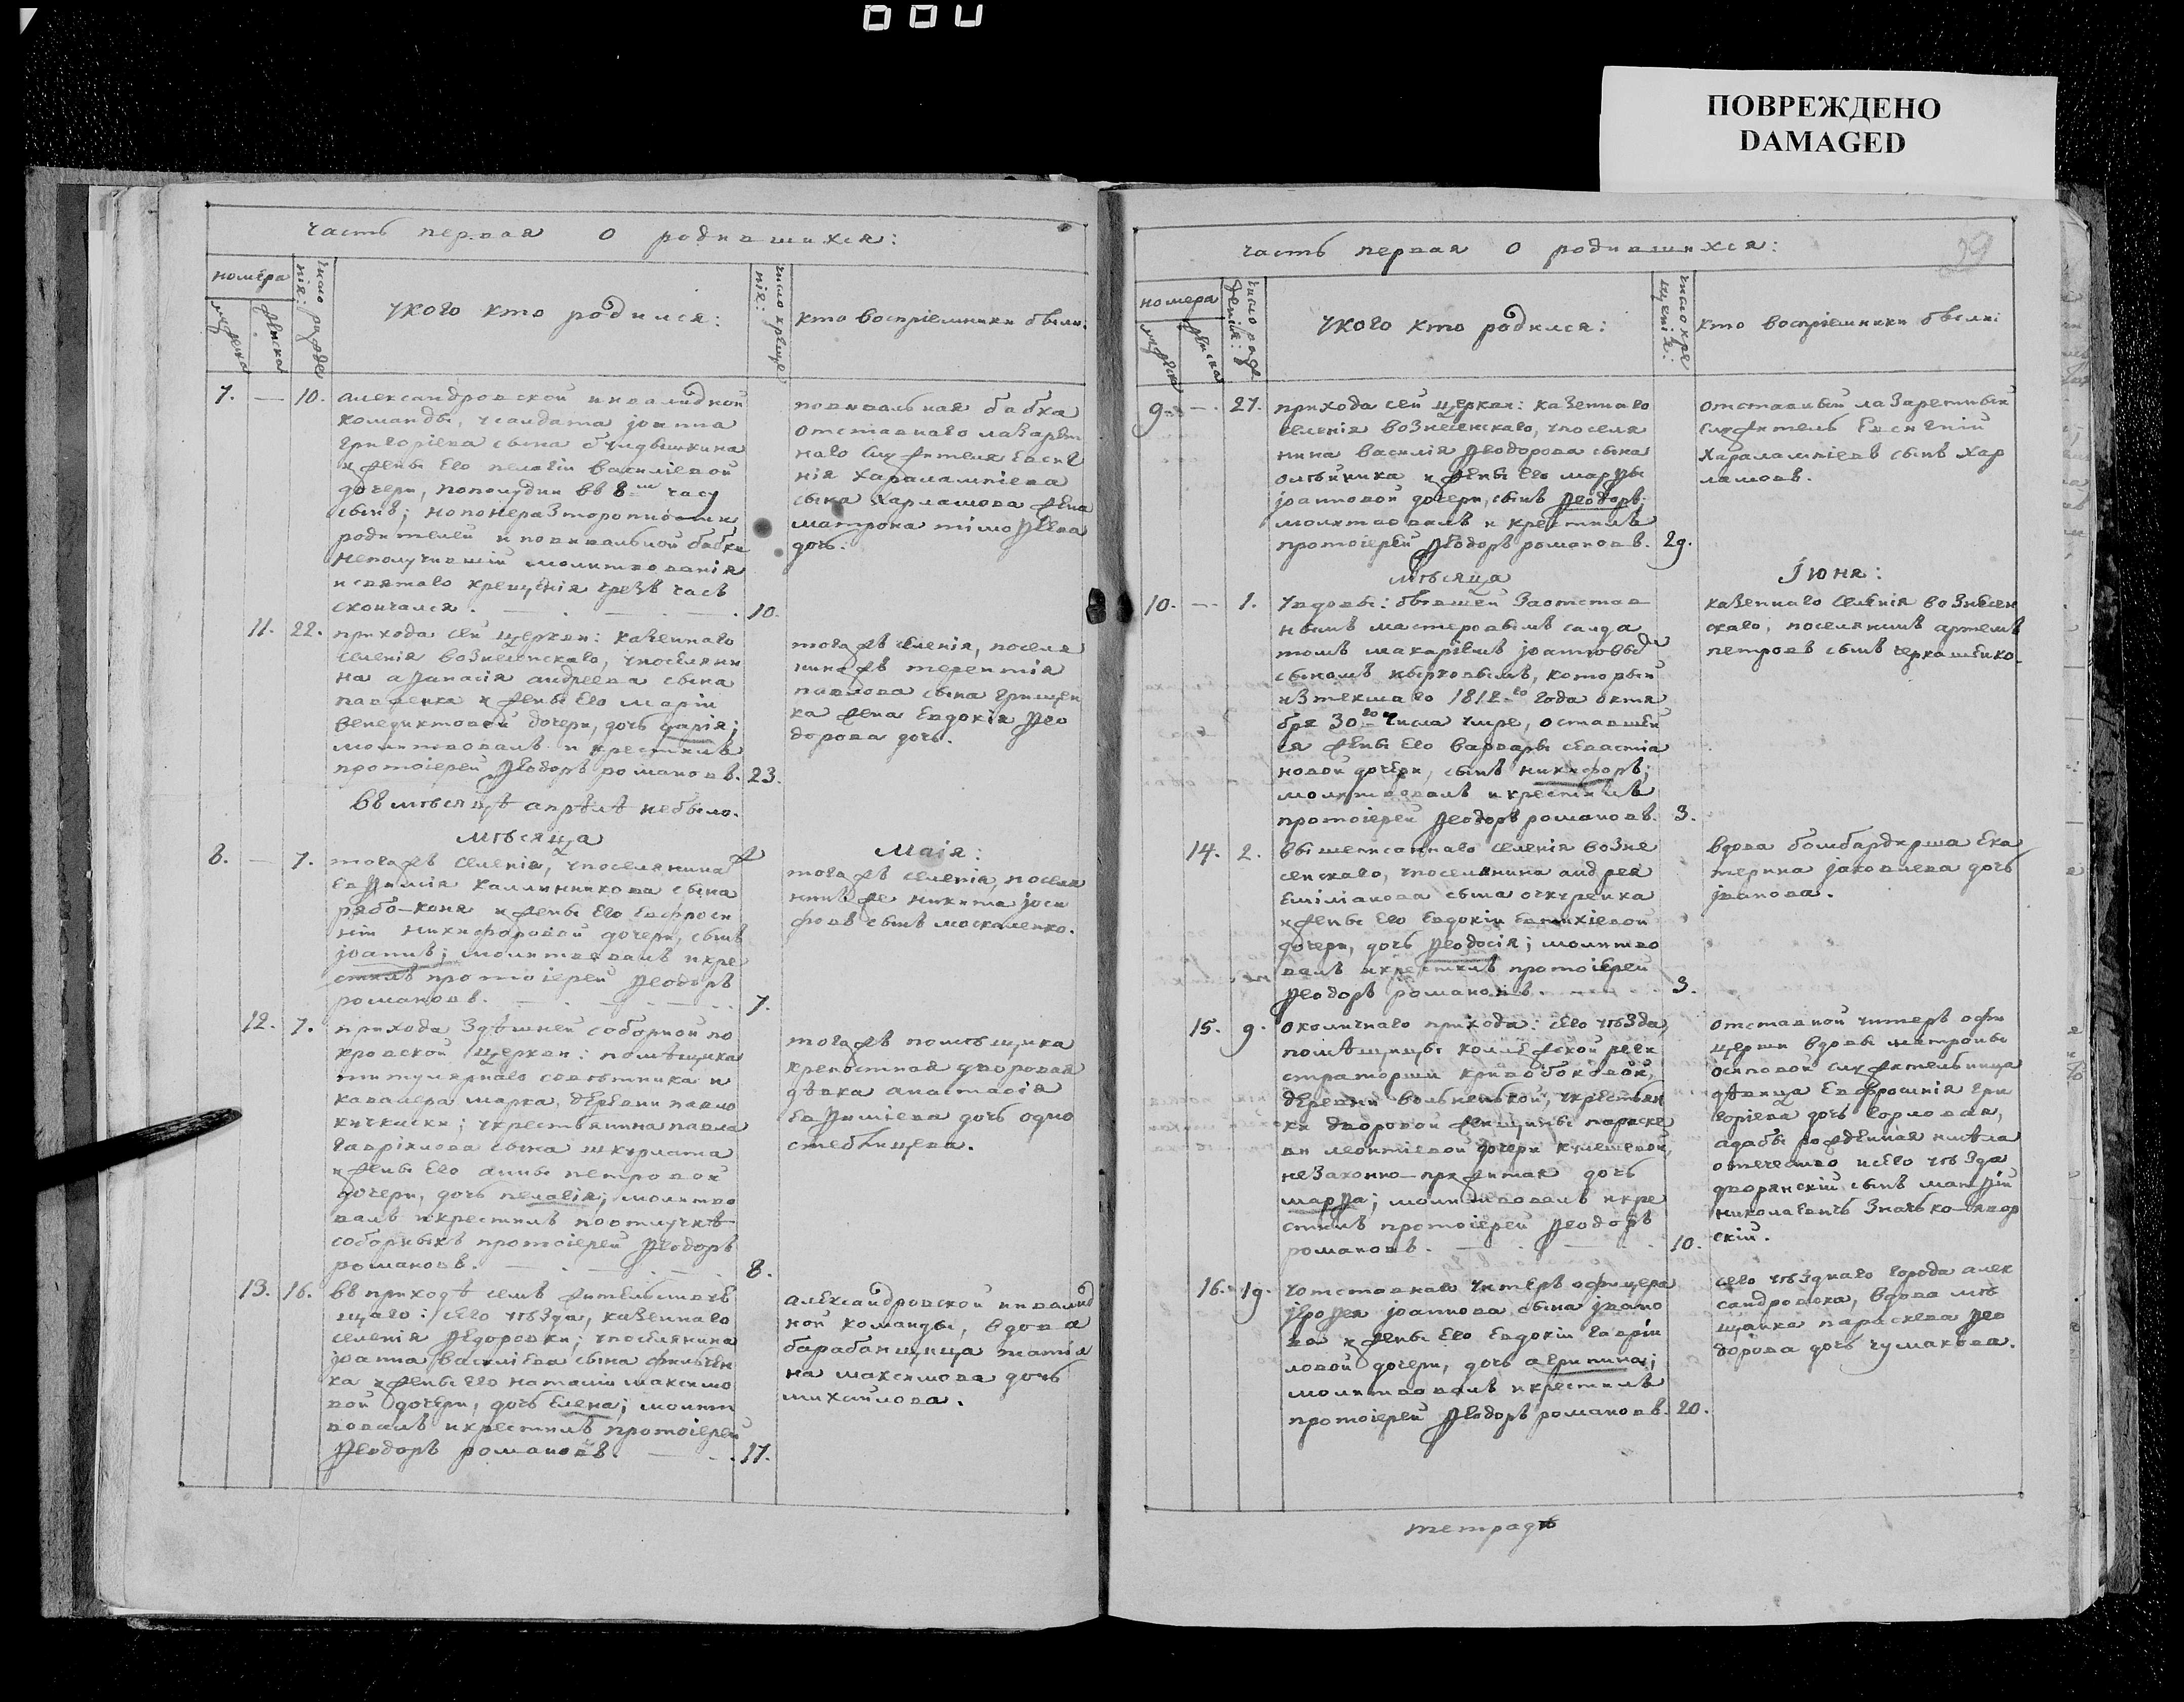 ПОВРЕЖДЕНО
DAMAGED
часть первая о родившихся:
номера
мужеска
женска
число рожде
нія:
у кого кто родился:
число креще
нія:
кто воспріемники были:
7. — 10. александровской инвалидной
команды, у салдата іоанна
григоріева сына
и жены его пелагіи василіевой
дочери, пополудни въ 8м часу
сынъ; но по нераз торопности
родителей и повивальной бабки
неполучившій молитвованія
и святаго крещенія чрезъ часъ
скончался. 10.
повивальная бабка
отставнаго лазарет
наго служителя евсиг
нія харалампіева
сына харламова жена
матрона тімоѳѣева
дочь.
11. 22. прихода сей церкви: казеннаго
селенія вознесенскаго, у поселяни
на аѳанасія андреева сына
павленка и жены его маріи
венедиктовой дочери, дочь марія;
молитвовалъ и крестилъ
протоіерей Ѳеодоръ романовъ. 23.
тогожъ селенія, поселя
нина жъ терентія
павлова сына грищен
ка жена евдокія Ѳео
дорова дочь.
въ мѣсяцѣ апрѣлѣ небыло.
мѣсяца
маія:
8. — 7. тогожъ селенія, у поселянина ж
евѳимія каллинникова сына
рябо-коня и жены его евфроси
ніи никифоровой дочери, сынъ
іоаннъ; молитвовалъ и кре
стилъ протоіерей Ѳеодоръ
романовъ. 7.
тогожъ селенія, поселя
нинъ же никита іоси
фовъ сынъ москаленко.
12. 7. прихода здѣшней соборной по
кровской церкви: помѣщика
титулярнаго совѣтника и
кавалера марка, деревни павло
кичкаски; у крестьянина павла
гавріилова сына шкурата
и жены его анны петровой
дочери, дочь пелагія; молитво
валъ и крестилъ по отлучкѣ
соборныхъ протоіерей Ѳеодоръ
романовъ. 8.
тогожъ помѣщика
крепостная дворовая
дѣвка анастасія
евѳиміева дочь одно
стеблицева.
13. 16. въ приходѣ семъ жительствую
щаго: сего уѣзда, казеннаго
селенія Ѳедоровки; у поселянина
іоанна василіева сына
ка и жены его наталіи максимо
вой дочери, дочь елена; молит
вовалъ и крестилъ протоіерей
Ѳеодоръ романовъ. 17.
александровской инвалид
ной команды, вдова
барабанщица татіа
на максимова дочь
михайлова.
39
часть первая о родившихся:
номера
мужеска
женска
число рож
денія:
у кого кто родился:
число кре
щенія:
кто воспріемники были:
9. — 27. прихода сей церкви: казеннаго
селенія вознесенскаго, у поселя
нина василія Ѳеодорова сына
олѣйника и жены его марѳы
іоанновой дочери, сынъ Ѳеодоръ;
молитвовалъ и крестилъ
протоіерей Ѳеодоръ романовъ. 29.
отставный лазаретный
служитель евсигній
харалампіевъ сынъ хар
ламовъ.
мѣсяца
Іюня:
10. — 1. у вдовы: бывшей за отстав
нымъ мастеровымъ салда
томъ макаріемъ іоанновымъ
сыномъ кырховымъ, который
изтекшаго 1812-го года октя
бря 30го числа умре, оставшей
ся жены его варвары севастіа
новой дочери, сынъ никифоръ;
молитвовалъ и крестилъ
протоіерей Ѳеодоръ романовъ. 3.
казеннаго селенія вознесен
скаго, поселянинъ артемъ
петровъ сынъ
14. 2. вышеписаннаго селенія возне
сенскаго, у поселянина андрея
емиліанова сына очкуренка
и жены его евдокіи евтихіевой
дочери, дочь Ѳеодосія; молитво
валъ и крестилъ протоіерей
Ѳеодоръ романовъ. 3.
вдова бомбардирша ека
терина іаковлева дочь
іванова.
15. 9. околичнаго прихода: сего уѣзда,
помѣщицы коллежской реги
страторши кривобоковой,
деревни вольненькой, у крестьян
ки дворовой женщины параске
вы леонтіевой дочери кулешевой,
незаконно-прижитая дочь
марѳа; молитвовалъ и кре
стилъ протоіерей Ѳеодоръ
романовъ. 10.
отставной унтеръ офи
церши вдовы матроны
осиповой служительница
дѣвица евфросинія гри
горіева дочь горловая,
адабы рожденная имѣла
отечество и сего уѣзда
дворянскій сынъ матѳій
николаевичъ значко-явор
скій.
16. 19. у отставнаго унтеръ офицера
іероѳея іоаннова сына івано
ва и жены его евдокіи гавріи
ловой дочери, дочь агрипина;
молитвовалъ и крестилъ
протоіерей Ѳеодоръ романовъ. 20.
сего уѣзднаго города алек
сандровска, вдова мѣ
щанка параскева Ѳео
дорова дочь чумакова.
тетрадь